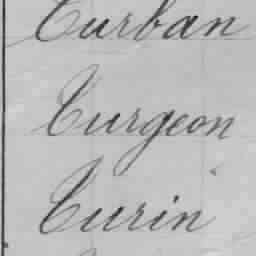 Turban
Turgeon
Turin